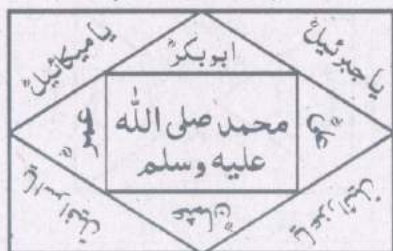 یا جبرئیلؑ
یا میکائیلؑ
ابوبکرؓ
علیؓ
محمد صلی الله
علیه وسلم
عمرؓ
عثمانؓ
یا عزرائیلؑ
یا اسرافیلؑ